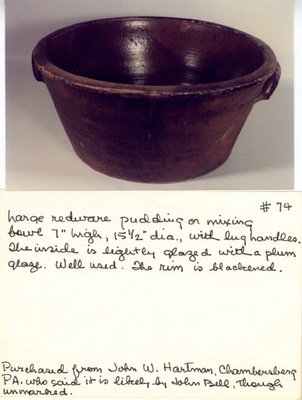 # 74
Large redware pudding or mixing
bowl 7" high, 15 1/2" dia., with lug handles.
The inside is lightly glazed with a plum
glaze. Well used. The rim is blackened.
Purchased from John W. Hartman, Chambersberg
PA. who said it is likely by John Bell, though
unmarked.